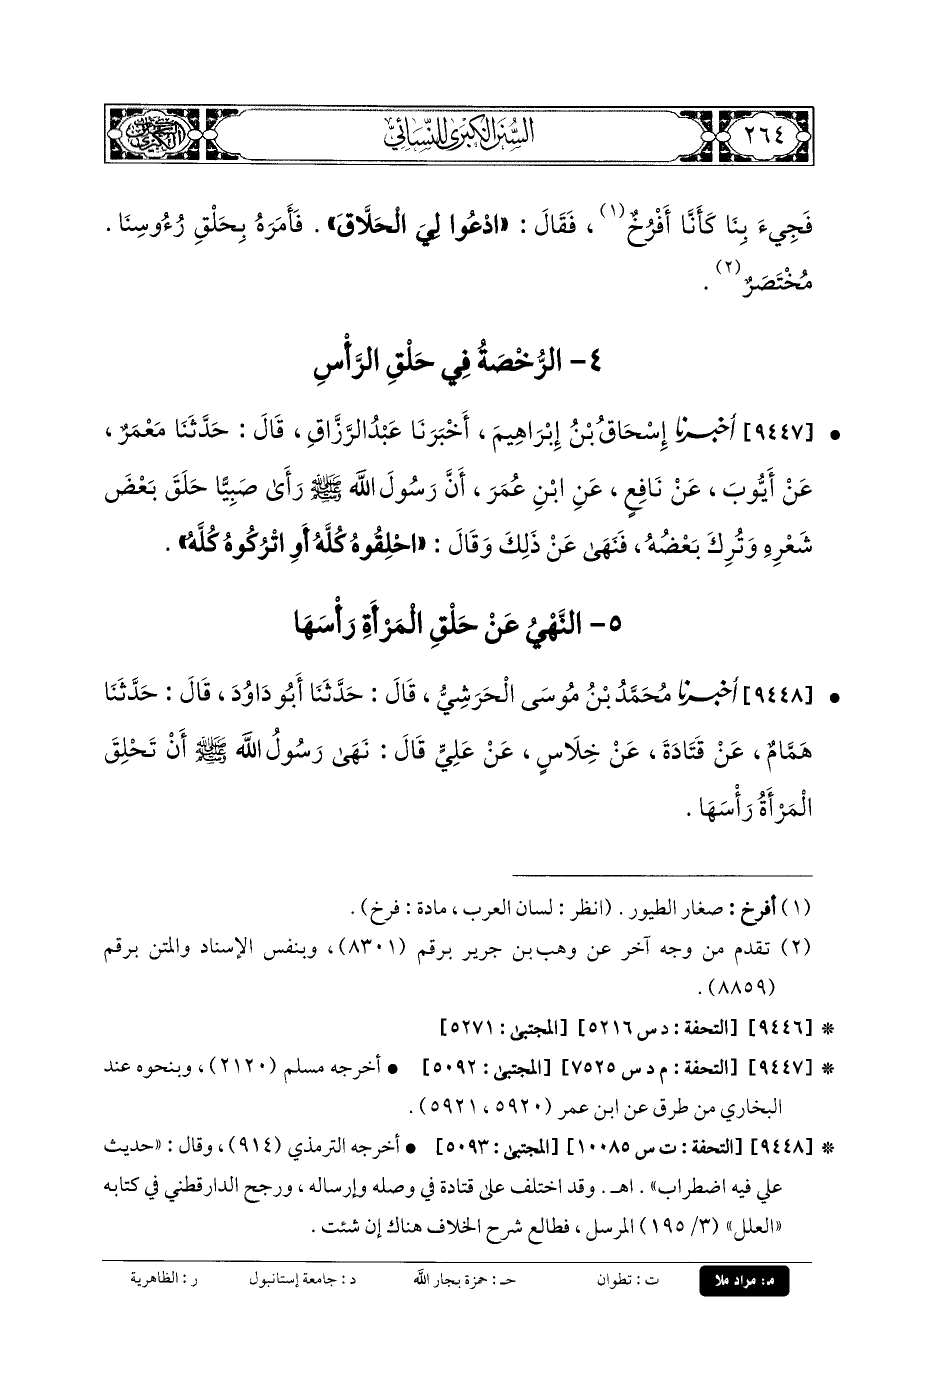 ٢٦٤
السُّنَنُ الكِبْرَىٰ لِلنَّسَائِيِّ
فَجِيءَ بِنَا كَأَنَّا أَفْرُخٌ(١)، فَقَالَ : «ادْعُوا لِيَ الْحَلَّاقَ» . فَأَمَرَهُ بِحَلْقِ رُءُوسِنَا .
مُخْتَصَرٌ(٢) .
٤- الرُّخْصَةُ فِي حَلْقِ الرَّأْسِ
• [٩٤٤٧] أَخْبَرَنَا إِسْحَاقُ بْنُ إِبْرَاهِيمَ، أَخْبَرَنَا عَبْدُالرَّزَّاقِ، قَالَ : حَدَّثَنَا مَعْمَرٌ،
عَنْ أَيُّوبَ، عَنْ نَافِعٍ، عَنِ ابْنِ عُمَرَ، أَنَّ رَسُولَ اللَّه ﷺ رَأَىٰ صَبِيًّا حَلَقَ بَعْضَ
شَعْرِهِ وَتُرِكَ بَعْضُهُ، فَنَهَىٰ عَنْ ذَلِكَ وَقَالَ : «احْلِقُوهُ كُلَّهُ أَوِ اتْرُكُوهُ كُلَّهُ» .
٥- النَّهْيُ عَنْ حَلْقِ الْمَرْأَةِ رَأْسَهَا
• [٩٤٤٨] أَخْبَرَنَا مُحَمَّدُ بْنُ مُوسَى الْحَرَشِيُّ، قَالَ : حَدَّثَنَا أَبُو دَاوُدَ، قَالَ : حَدَّثَنَا
هَمَّامٌ، عَنْ قَتَادَةَ، عَنْ خِلَاسٍ، عَنْ عَلِيٍّ قَالَ : نَهَىٰ رَسُولُ اللَّه ﷺ أَنْ تَحْلِقَ
الْمَرْأَةُ رَأْسَهَا .
(١) أفرخ : صغار الطيور . (انظر : لسان العرب، مادة : فرخ) .
(٢) تقدم من وجه آخر عن وهب بن جرير برقم (٨٣٠١)، وبنفس الإسناد والمتن برقم
(٨٨٥٩) .
* [٩٤٤٦] [التحفة : د س ٥٢١٦] [المجتبىٰ : ٥٢٧١]
* [٩٤٤٧] [التحفة : م د س ٧٥٢٥] [المجتبىٰ : ٥٠٩٢] • أخرجه مسلم (٢١٢٠)، وبنحوه عند
البخاري من طرق عن ابن عمر (٥٩٢٠، ٥٩٢١) .
* [٩٤٤٨] [التحفة : ت س ١٠٠٨٥] [المجتبىٰ : ٥٠٩٣] • أخرجه الترمذي (٩١٤)، وقال : «حديث
علي فيه اضطراب» . اهـ . وقد اختلف علىٰ قتادة في وصله وإرساله، ورجح الدارقطني في كتابه
«العلل» (٣/ ١٩٥) المرسل، فطالع شرح الخلاف هناك إن شئت .
م: مراد ملا ت : تطوان حـ : حمزة بجار اللَّه د : جامعة إستانبول ر : الظاهرية